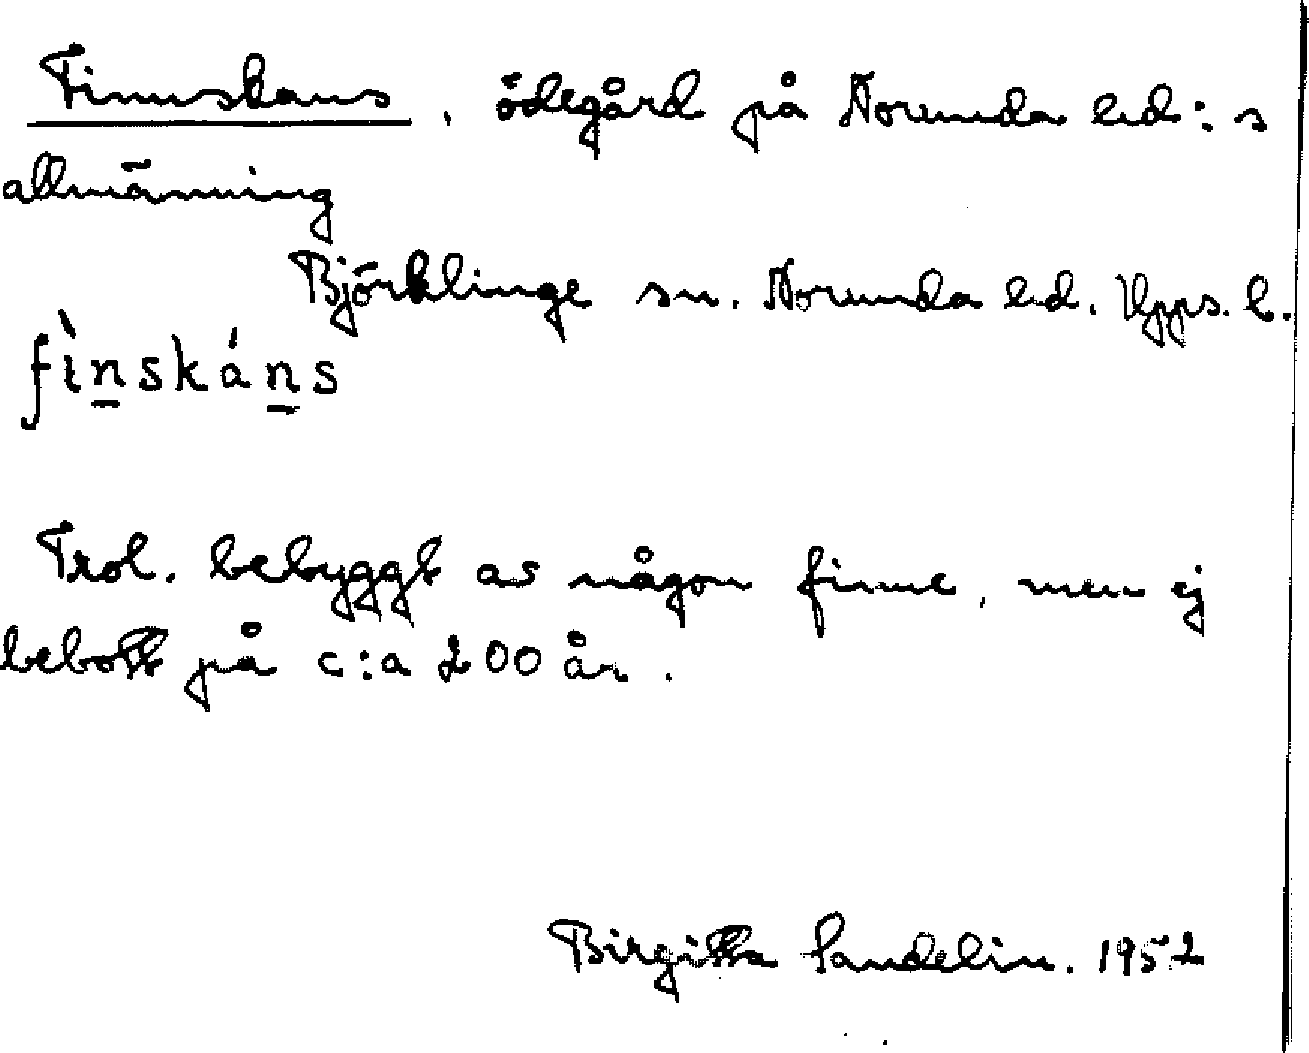 Finnskans, ödegård på Norunda hd:s
allmänning
Björklinge sn. Norunda hd. Upps. l.
fìn̲skán̲s
Trol. bebyggt av någon finne, men ej
bebott på c:a 200 år.
Birgitta Sandelin. 1952